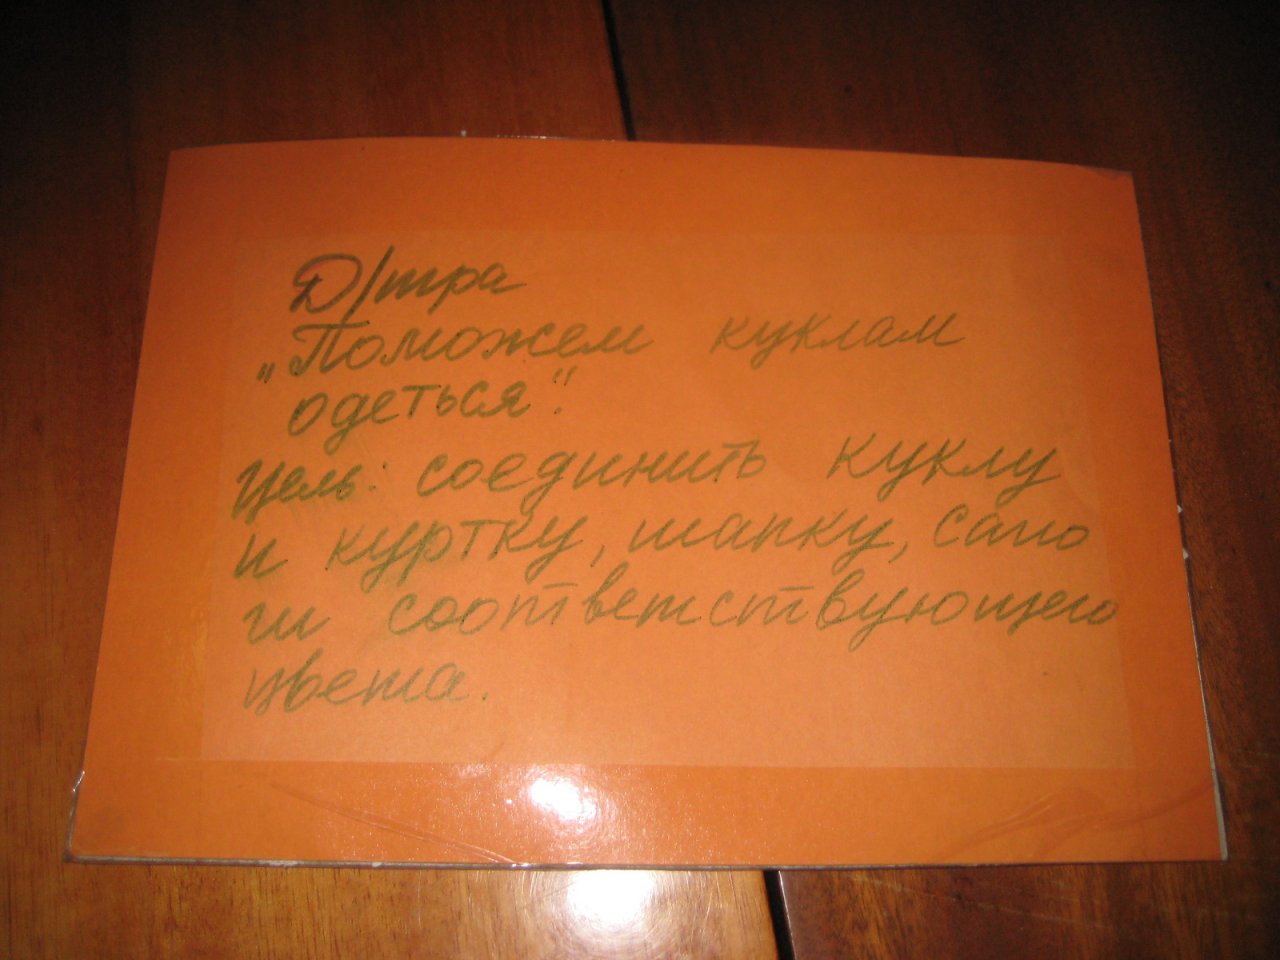 Д/игра
„Поможем куклам
одеться".
Цель: соединить куклу
и куртку, шапку, сапо
ги соответствующего
цвета.